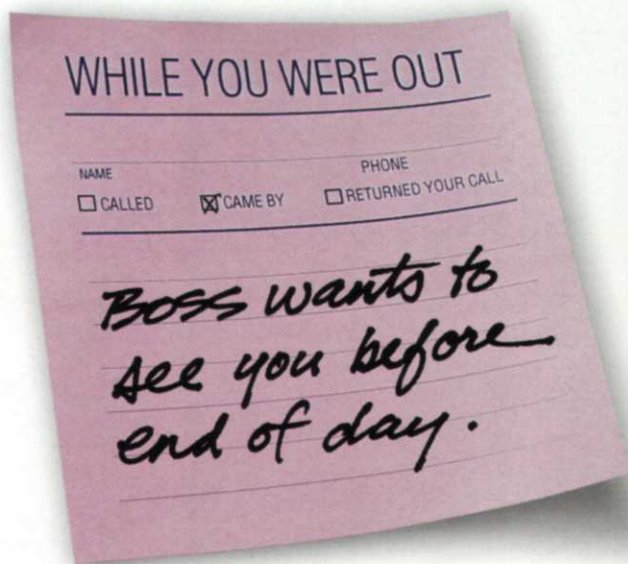 WHILE YOU WERE OUT
NAME PHONE
☐ CALLED ☒ CAME BY ☐ RETURNED YOUR CALL
Boss wants to
see you before
end of day.